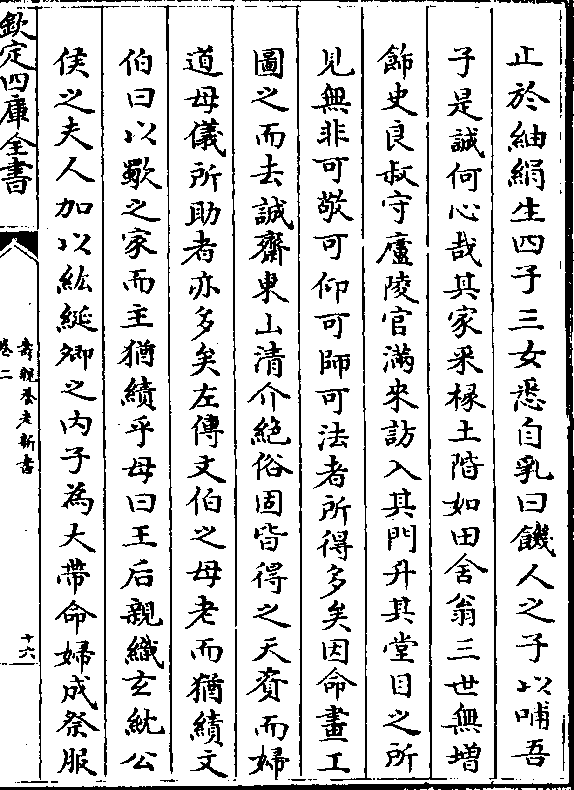 止於紬絹生四子三女悉自乳曰饑人之子以哺吾
子是誠何心哉其家采椽土階如田舍翁三世無増
飾史良叔守廬陵官滿來訪入其門升其堂目之所
見無非可敬可仰可師可法者所得多矣因命畫工
圖之而去誠齋東山清介絶俗固皆得之天資而婦
道母儀所助者亦多矣左傳文伯之母老而猶績文
伯曰以歜之家而主猶績乎母曰王后親織玄紞公
侯之夫人加以紘綖卿之内子為大帶命婦成祭服
欽定四庫全書
壽親養老新書
卷二
十六